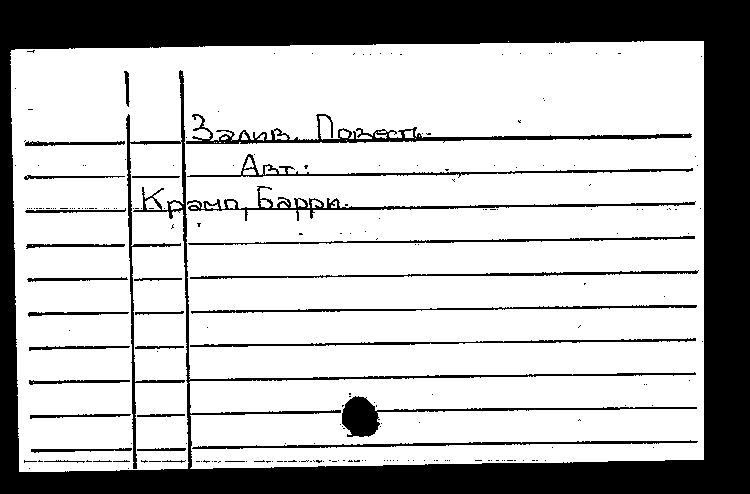 Залив. Повесть.
Авт.:
Крамп, Барри.